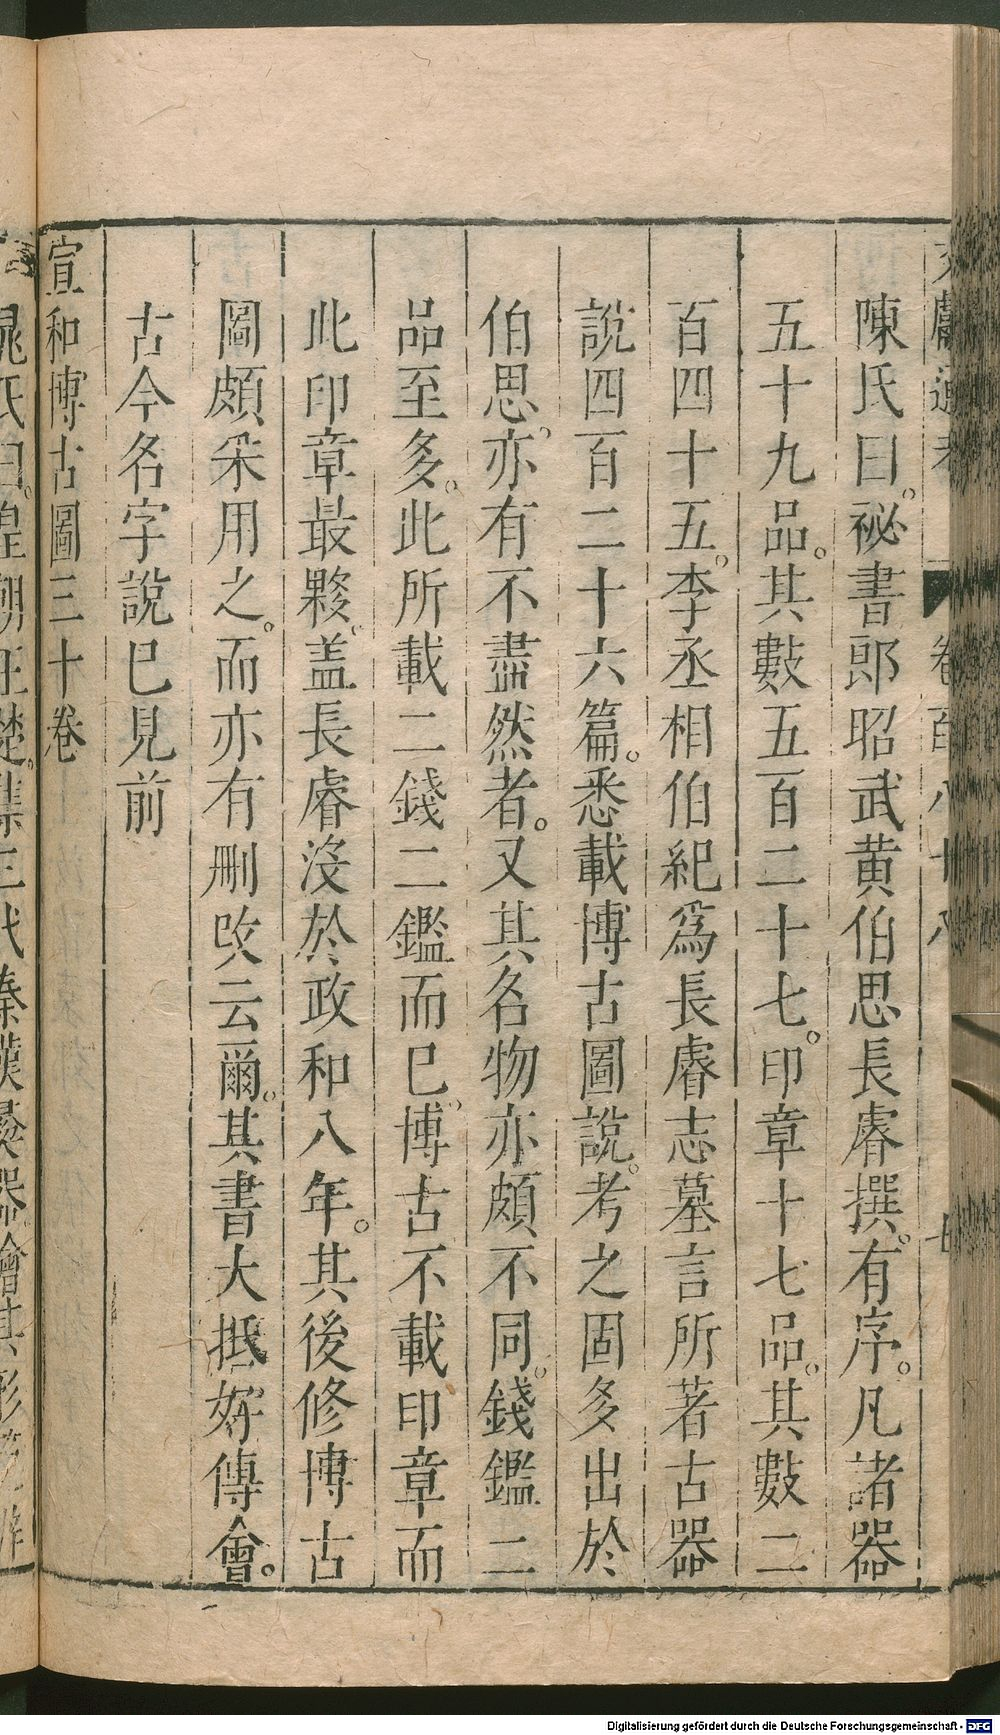 陳氏曰。祕書郎昭武黄伯思長睿撰。有序。凡諸器
五十九品。其數五百二十七。印章十七品。其數二
百四十五。李丞相伯紀爲長睿志墓言所著古器
說四百二十六篇。悉載博古圖說。考之固多出於
伯思。亦有不盡然者。又其名物亦頗不同。錢鑑二
品至多。此所載二錢二鑑而巳。博古不載印章而
此印章最夥。盖長睿沒於政和八年。其後修博古
圖頗采用之。而亦有刪改云爾。其書大抵好傅會。
古今名字說巳見前
宣和博古圖三十卷
Digitalisierung gefördert durch die Deutsche Forschungsgemeinschaft - DFG